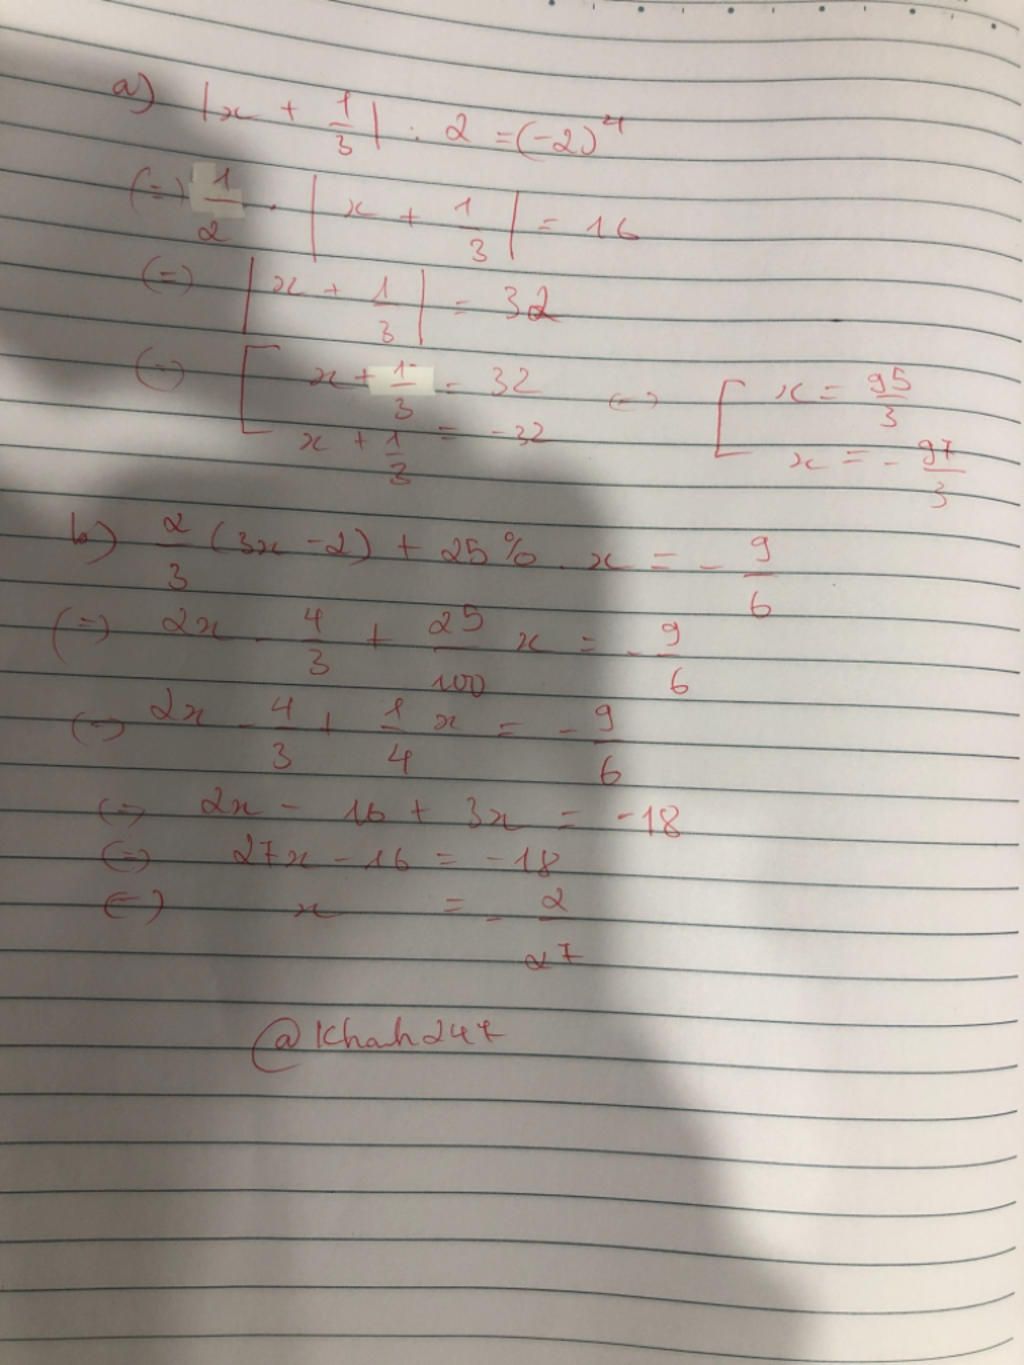 a) |x + 1/3| : 2 = (-2)^4
(=) 1/2 . |x + 1/3| = 16
(=) |x + 1/3| = 32
(=) [ x + 1/3 = 32 (=) [ x = 95/3
x + 1/3 = -32 x = - 97/3
b) 2/3 (3x - 2) + 25% . x = - 9/6
(=) 2x - 4/3 + 25/100 x = - 9/6
(=) 2x - 4/3 + 1/4 x = - 9/6
(=) 2x - 16 + 3x = -18
(=) 27x - 16 = -18
(=) x = - 2/27
@Khanh247